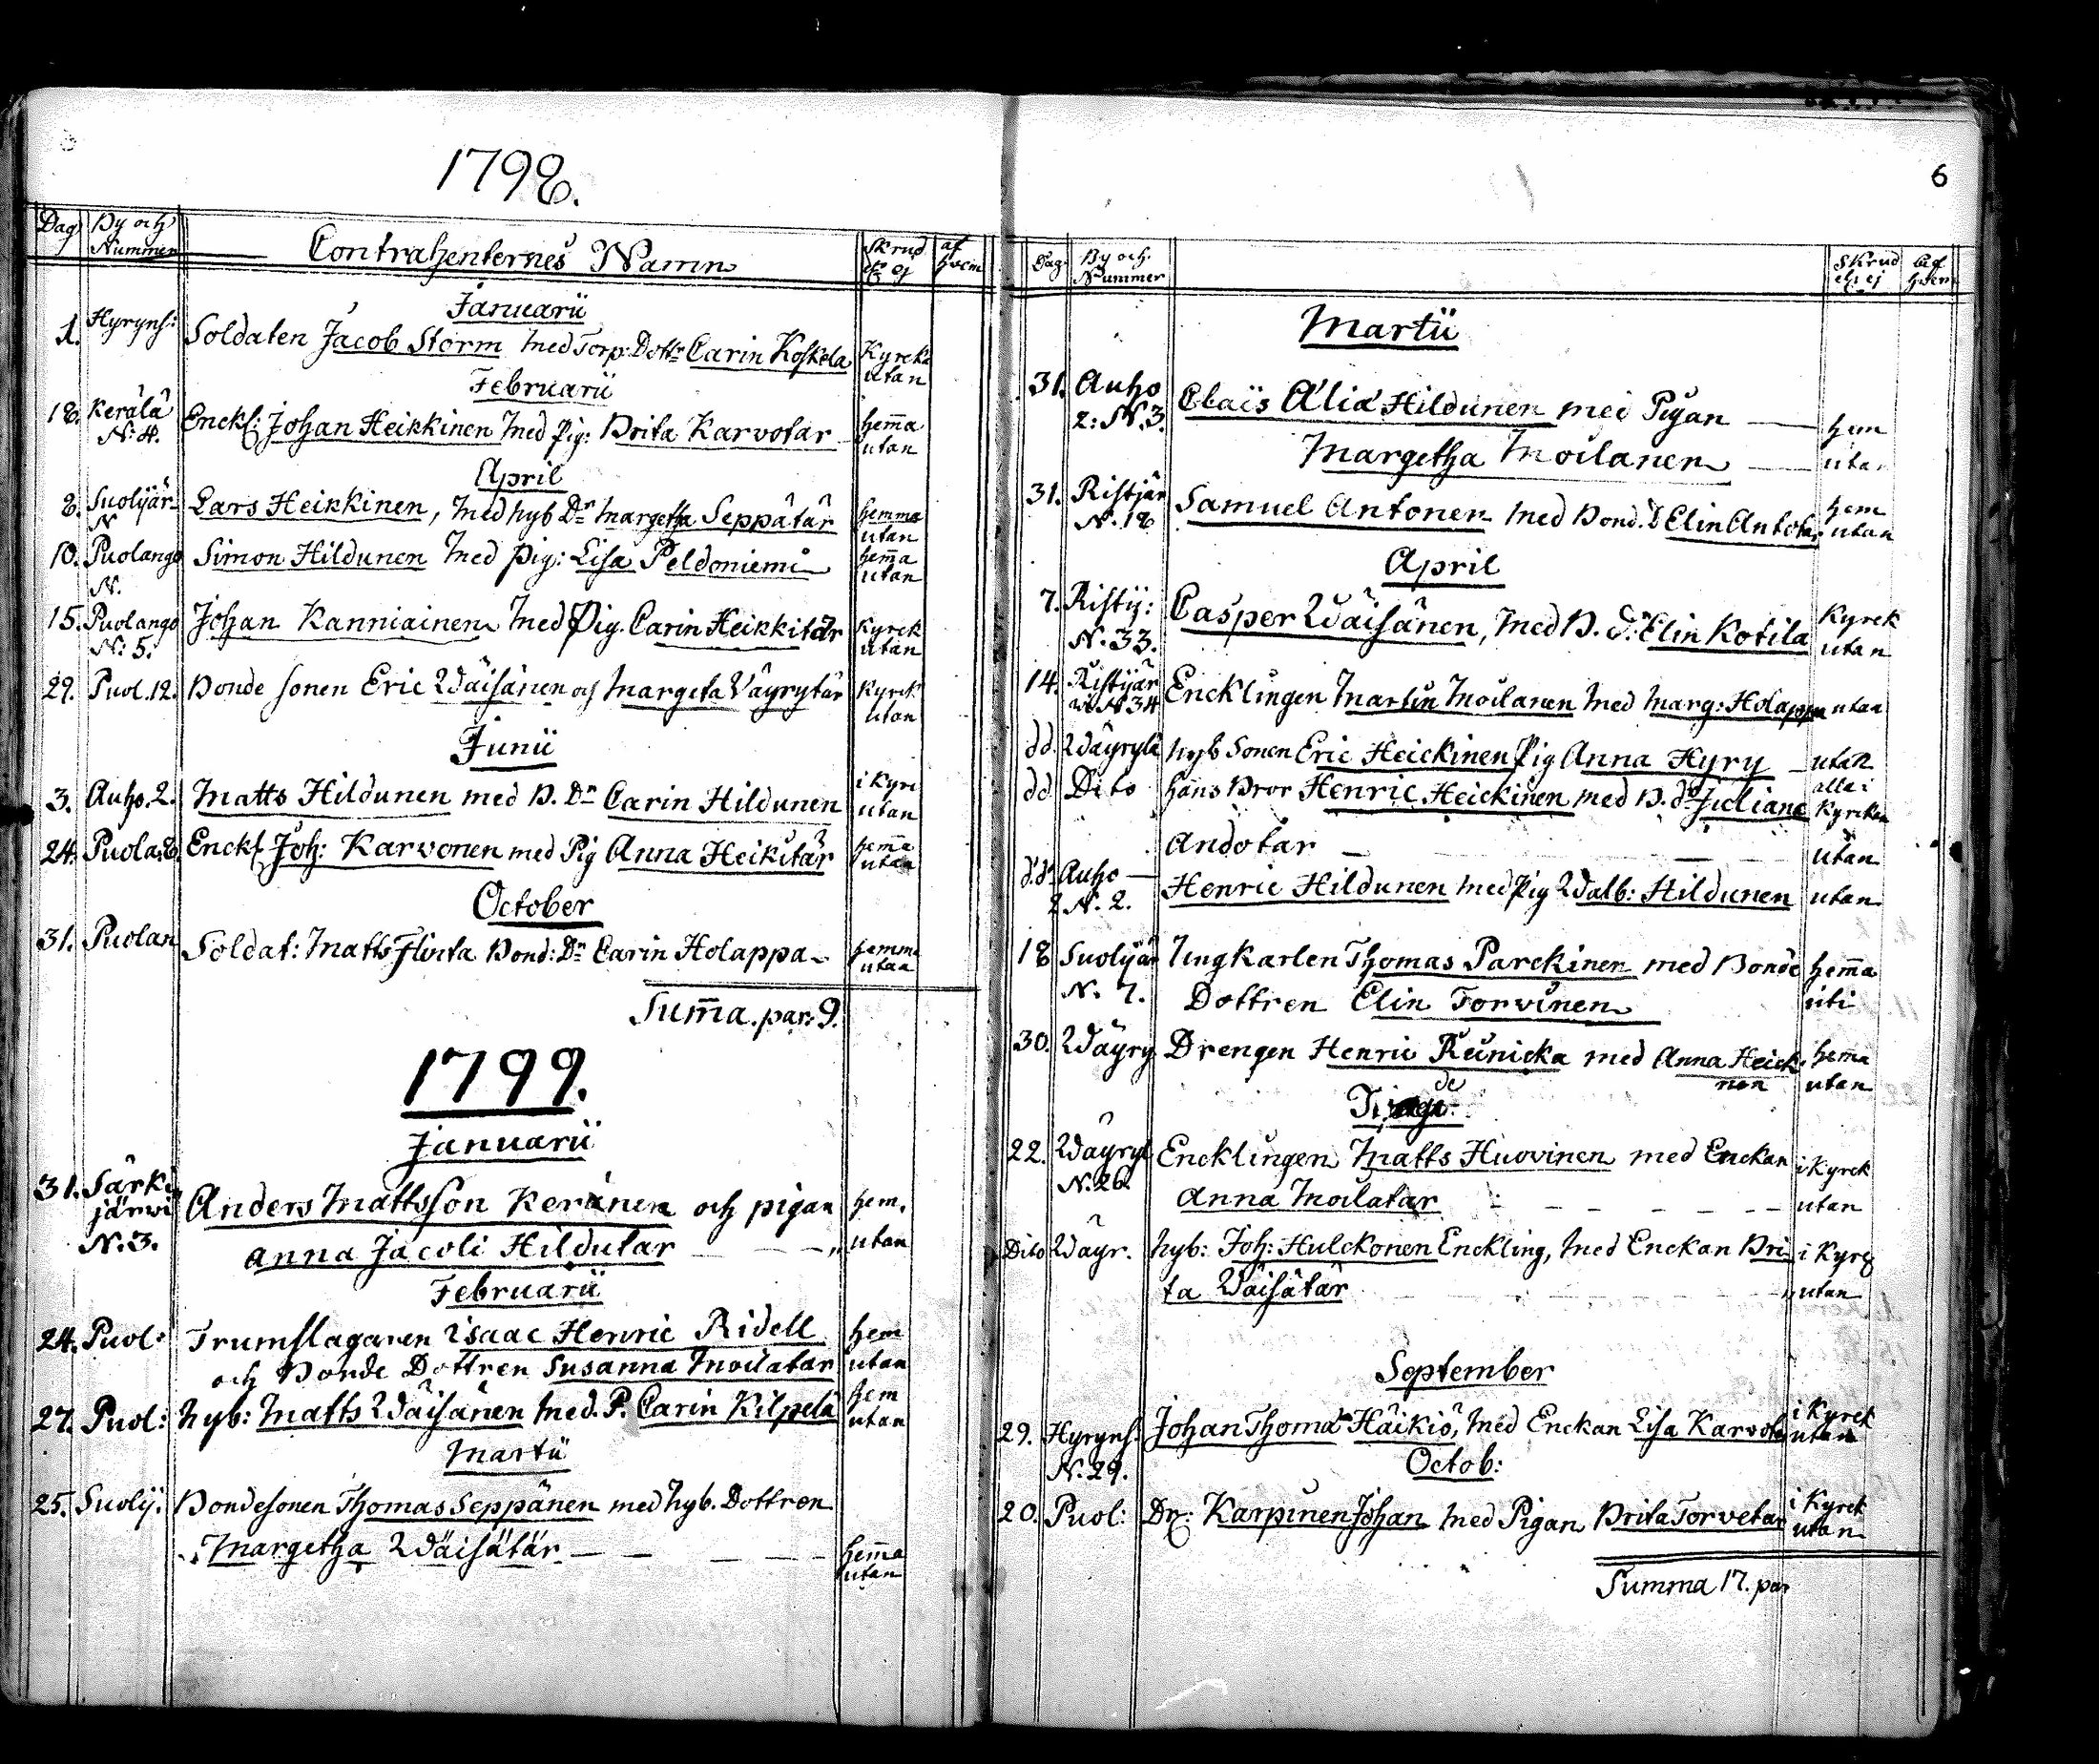 1798.
Dag By och Nummer Contrahenternes Namn Skrud ej af hvem
Januarii
1. Hyryns: Soldaten Jacob Storm med Torp: Dottr Carin Koskela Kyrcka
utan
Februarii
18. Kerälä Enckl: Johan Heikkinen med Pig: Brita Karvotar hem̄a
N:4. utan
April
8. Suolijär- Lars Heikkinen, med hyb Dr Margetha Seppätär hemma
N utan
10. Puolango Simon Hildunen med Pig: Lisa Peldoniemi hem̄a
N. utan
15. Puolango Johan Kanniainen med Pig. Carin Heikkitär Kyrck
N: 5. utan
29. Puol. 12. Bonde sonen Eric Wäisänen och Margeta Väyrytär Kyrck
utan
Junii
3. Auho. 2. Matts Hildunen med B. Dr Carin Hildunen i Kyrc
utan
24. Puola: 8. Enckl Joh: Karvonen med Pig Anna Heikitär hem̄a
utan
October
31. Puolan Soldat: Matts Flinta Bond: Dr Carin Holappa hemma
utan
Sum̄a. par. 9.
1799.
Januarii
31. Särki Anders Mattsson Keränen och pigan hem.
järwi
N:3. Anna Jacobi Hildutar utan
Februarii
24. Puol: Trumslagaren Isaac Henric Ridell hem
och Bonde Dottren Susanna Moilatar utan
27. Puol: hyb: Matts Wäisänen med. P. Carin Kilpelä hem
utan
Martii
25. Suolij. Bondesonen Thomas Seppänen med hyb. Dottren
Margetha Wäisätär hem̄a
utan
6
Dag. By och Nummer Skrud ej af hvem
Martii
31. Auho Clais Alia Hildunen med Pigan hem
2: N. 3.
Margetha Moilanen utan
31. Ristjär Samuel Antonen med Bond. D Elin Antotar hem
N. 18 utan
April
7. Ristij: Casper Wäisänen, med B. d: Elin Kotila Kyrck
N. 33. utan
14. Ristijär Encklingen Martin Moilanen med Marg: Holappa utan
N 34
dd. Wäyrylä hyb Sonen Eric Heickinen Pig Anna Hyry utan
dd Dito hans Bror Henric Heickinen med B. dr Juliana alla i
Kyrckan
Andotar utan
d.d. Auho Henric Hildunen med Pig Walb: Hildunen utan
2 N. 2.
18 Suolijär Ungkarlen Thomas Parckinen med Bonde hem̄a
N. 7. Dottren Elin Torvinen uti
30. Wäyry Drengen Henric Reinicka med Anna Heick hem̄a
nen utan
22. Wäyryl Encklingen Matts Huovinen med Enckan i Kyrck
N. 26. Anna Moilatar utan
Dito Wäyr. hyb: Joh: Hulckonen Enckling, med Enckan Bri i Kyrc
ta Wäisätär utan
September
29. Hyryns: Johan Thoma Häikiö, med Enckan Lisa Karvotar i Kyrck
N. 29. utan
Octob:
20. Puol: Dr: Karpinen Johan med Pigan Brita Torvetar i Kyrck
utan
Summa 17. par